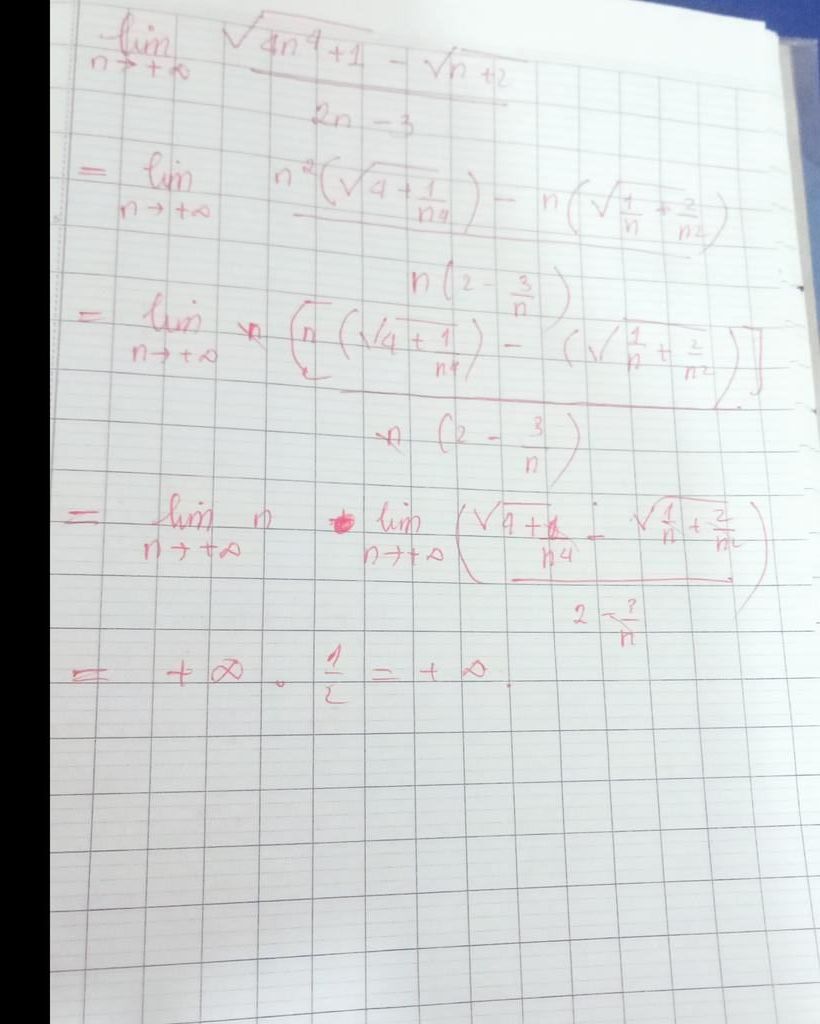 lim n→+∞ (√(4n⁴+1) - √(n+2)) / (2n - 3)
= lim n→+∞ (n²(√(4 + 1/n⁴)) - n(√(1/n + 2/n²))) / (n(2 - 3/n))
= lim n→+∞ n [n (√(4 + 1/n⁴)) - (√(1/n + 2/n²))] / (n (2 - 3/n))
= lim n→+∞ n · lim n→+∞ ((√(4 + 1/n⁴) - √(1/n + 2/n²)) / (2 - 3/n))
= +∞ . 1/2 = +∞.